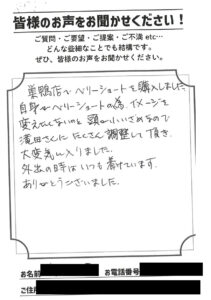 皆様のお声をお聞かせください！
ご質問・ご要望・ご提案・ご不満 etc…
どんな些細なことでも結構です。
ぜひ、皆様のお声をお聞かせください。
巣鴨店でベリーショートを購入しました
自身がベリーショートの為、イメージを
変えたくないのと頭が小さいさめなので
濱田さんに たくさん調整して頂き、
大変気に入りました。
外出の時はいつも着けています。
ありがとうございました。
お名前
お電話番号
ご住所